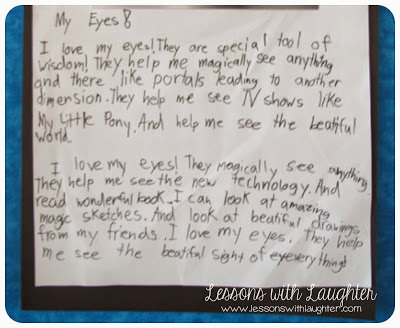 My Eyes!
I love my eyes! They are special tool of
wisdom! They help me magically see anything
and there like portals leading to another
dimension. They help me see TV shows like
My Little Pony. And help me see the beatiful
world.
I love my eyes! They magically see anything
They help me see the new technology. And
read wonderful book. I can look at amazing
magic sketches. And look at beatiful drawings
from my friends. I love my eyes. They help
me see the beatiful sight of eyeverything!
Lessons with Laughter
www.lessonswithlaughter.com